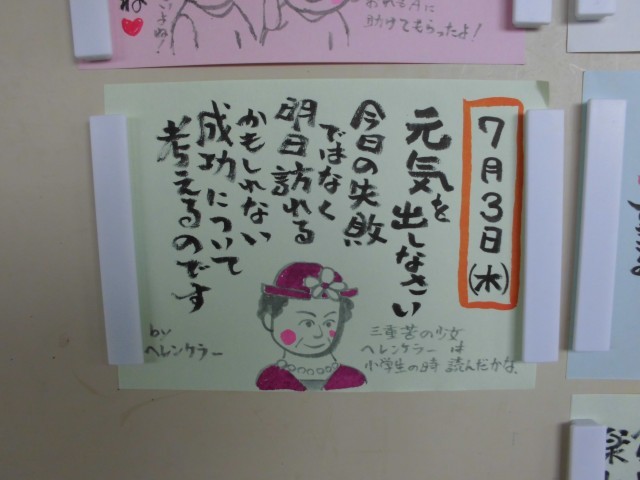 7月3日(水)
元気を
出しなさい
今日の失敗
ではなく
明日訪れる
かもしれない
成功について
考えるのです
by
ヘレンケラー
三重苦の少女
ヘレンケラーは
小学生の時 読んだかな。
ね
いよね!
おれもAに
助けてもらったよ!